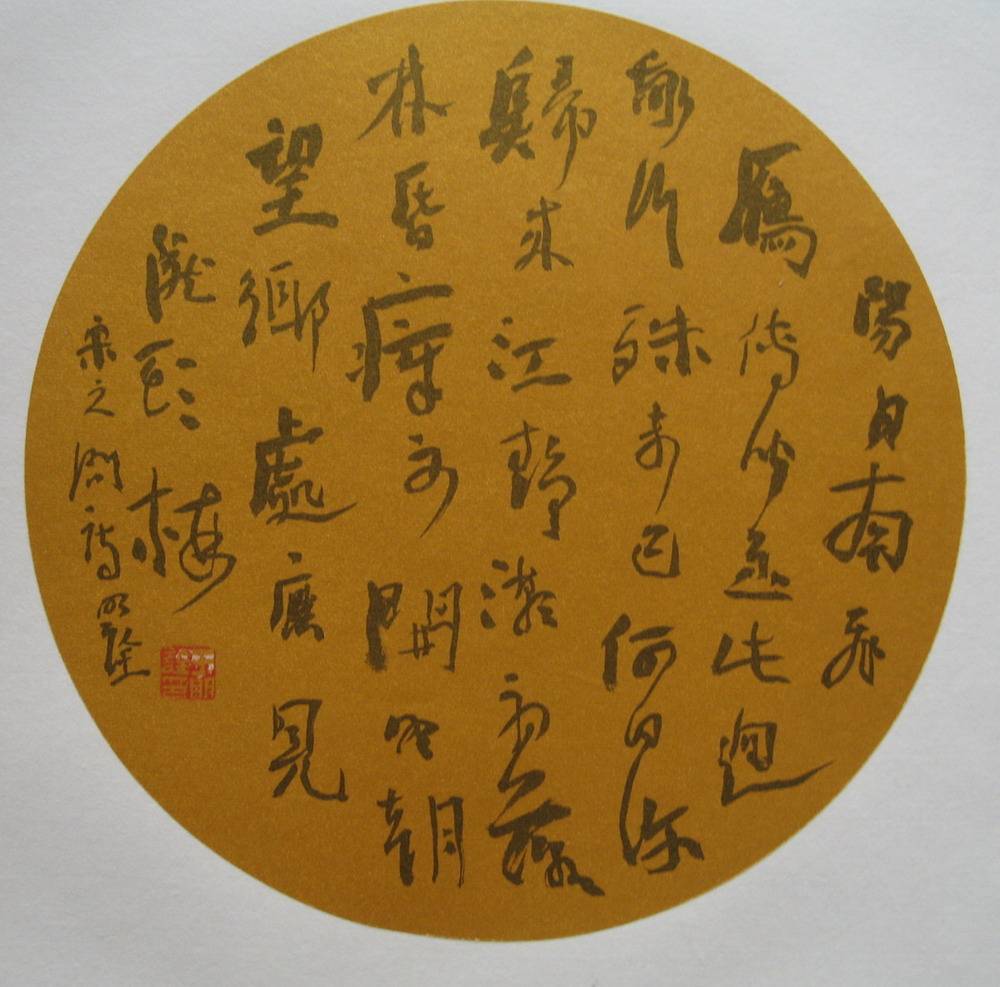 陽月南飛
鴈傳聞至此迴
我行殊未已何日復
歸来江静潮初落
林昏瘴不開明朝
望鄉處應見
隴頭梅
宋之问詩